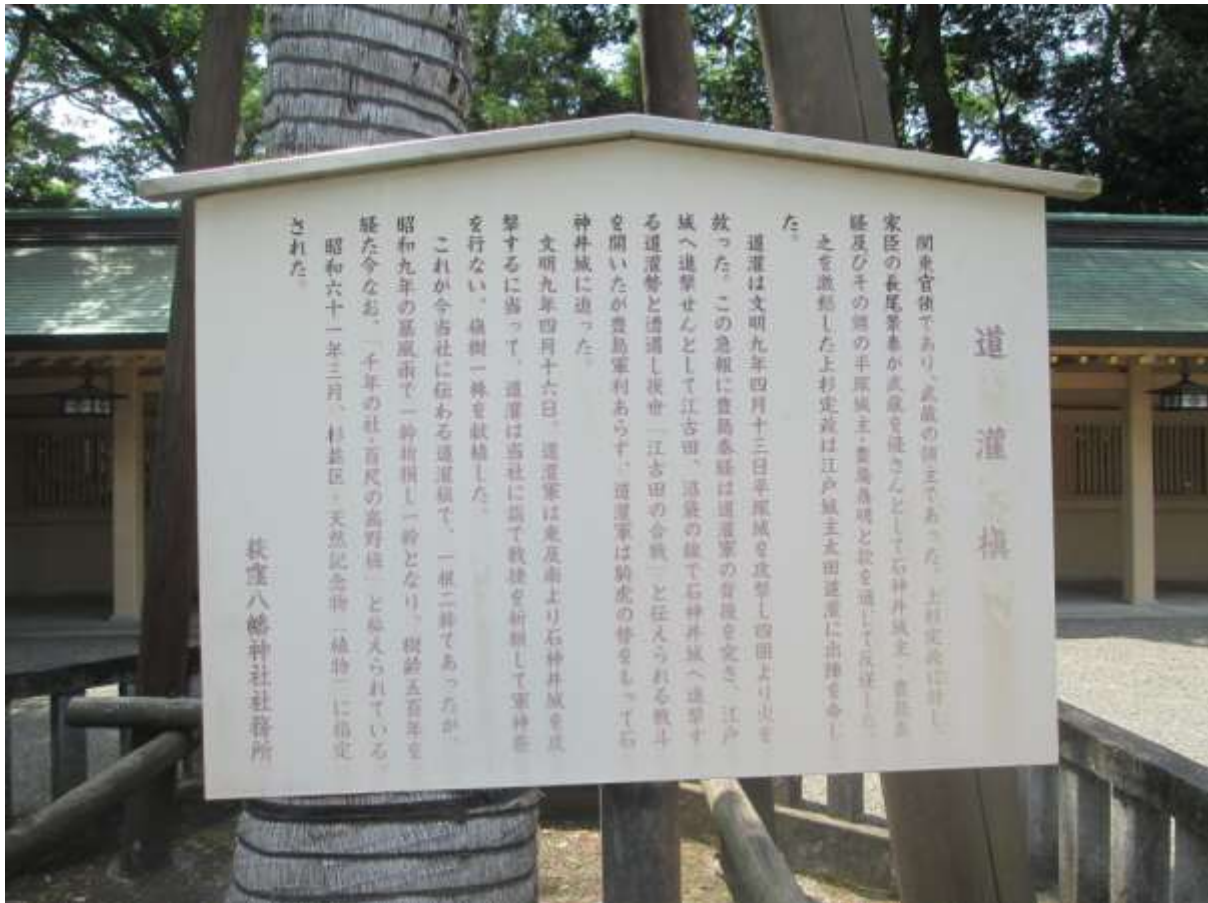 道灌槇
関東管領であり、武蔵の領主であった。上杉定政に対し、
家臣の長尾景春が武蔵を侵さんとして石神井城主・豊島泰
経及びその弟の平塚城主・豊島泰明と款を通して反逆した。
之を激怒した上杉定政は江戸城主太田道灌に出陣を命し
た。
道灌は文明九年四月十三日平塚城を攻撃し四囲より火を
放った。この急報に豊島泰経は道灌軍の背後を突き、江戸
城へ進撃せんとして江古田、沼袋の線で石神井城へ進撃す
る道灌勢と遭遇し後世「江古田の合戦」と伝えられる戦斗
を開いたが豊島軍利あらず、道灌軍は騎虎の勢をもって石
神井城に迫った。
文明九年四月十六日、道灌軍は東及南より石神井城を攻
撃するに当って、道灌は当社に詣で戦捷を祈願して軍神祭
を行ない、槇樹一株を献植した。
これが今当社に伝わる道灌槇で、一根二幹てあったが、
昭和九年の暴風雨で一幹折損し一幹となり、樹齢五百年を
経た今なお、「千年の社・百尺の高野槇」と伝えられている。
昭和六十一年三月、杉並区・天然記念物（植物）に指定
された。
荻窪八幡神社社務所